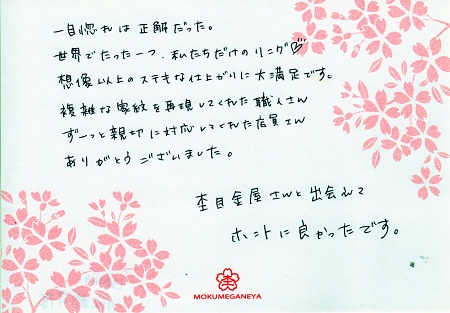 一目惚れは正解だった。
世界でたった一つ、私たちだけのリング♡
想像以上のステキな仕上がりに大満足です。
複雑な家紋を再現してくれた職人さん
ずーっと親切に対応してくれた店員さん
ありがとうございました。
杢目金屋さんと出会えて
ホントに良かったです。
杢
MOKUMEGANEYA